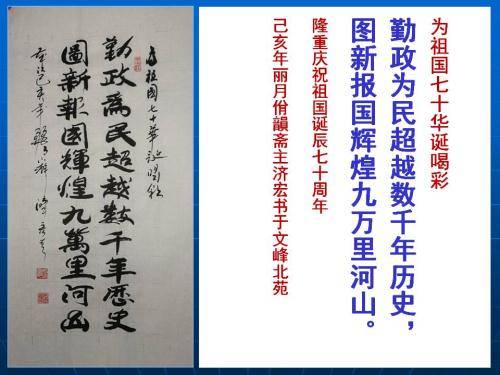 为祖國七十華誕喝彩
勤政為民超越数千年歷史
圖新報國輝煌九萬里河山
为祖国七十华诞喝彩
勤政为民超越数千年历史，
图新报国辉煌九万里河山。
隆重庆祝祖国诞辰七十周年
己亥年丽月佾韻斋主济宏书于文峰北苑